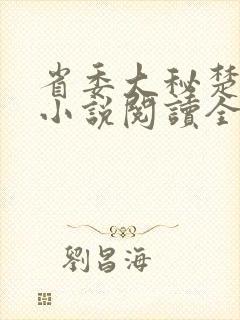 省委大秘楚
小說閱讀全
劉昌海